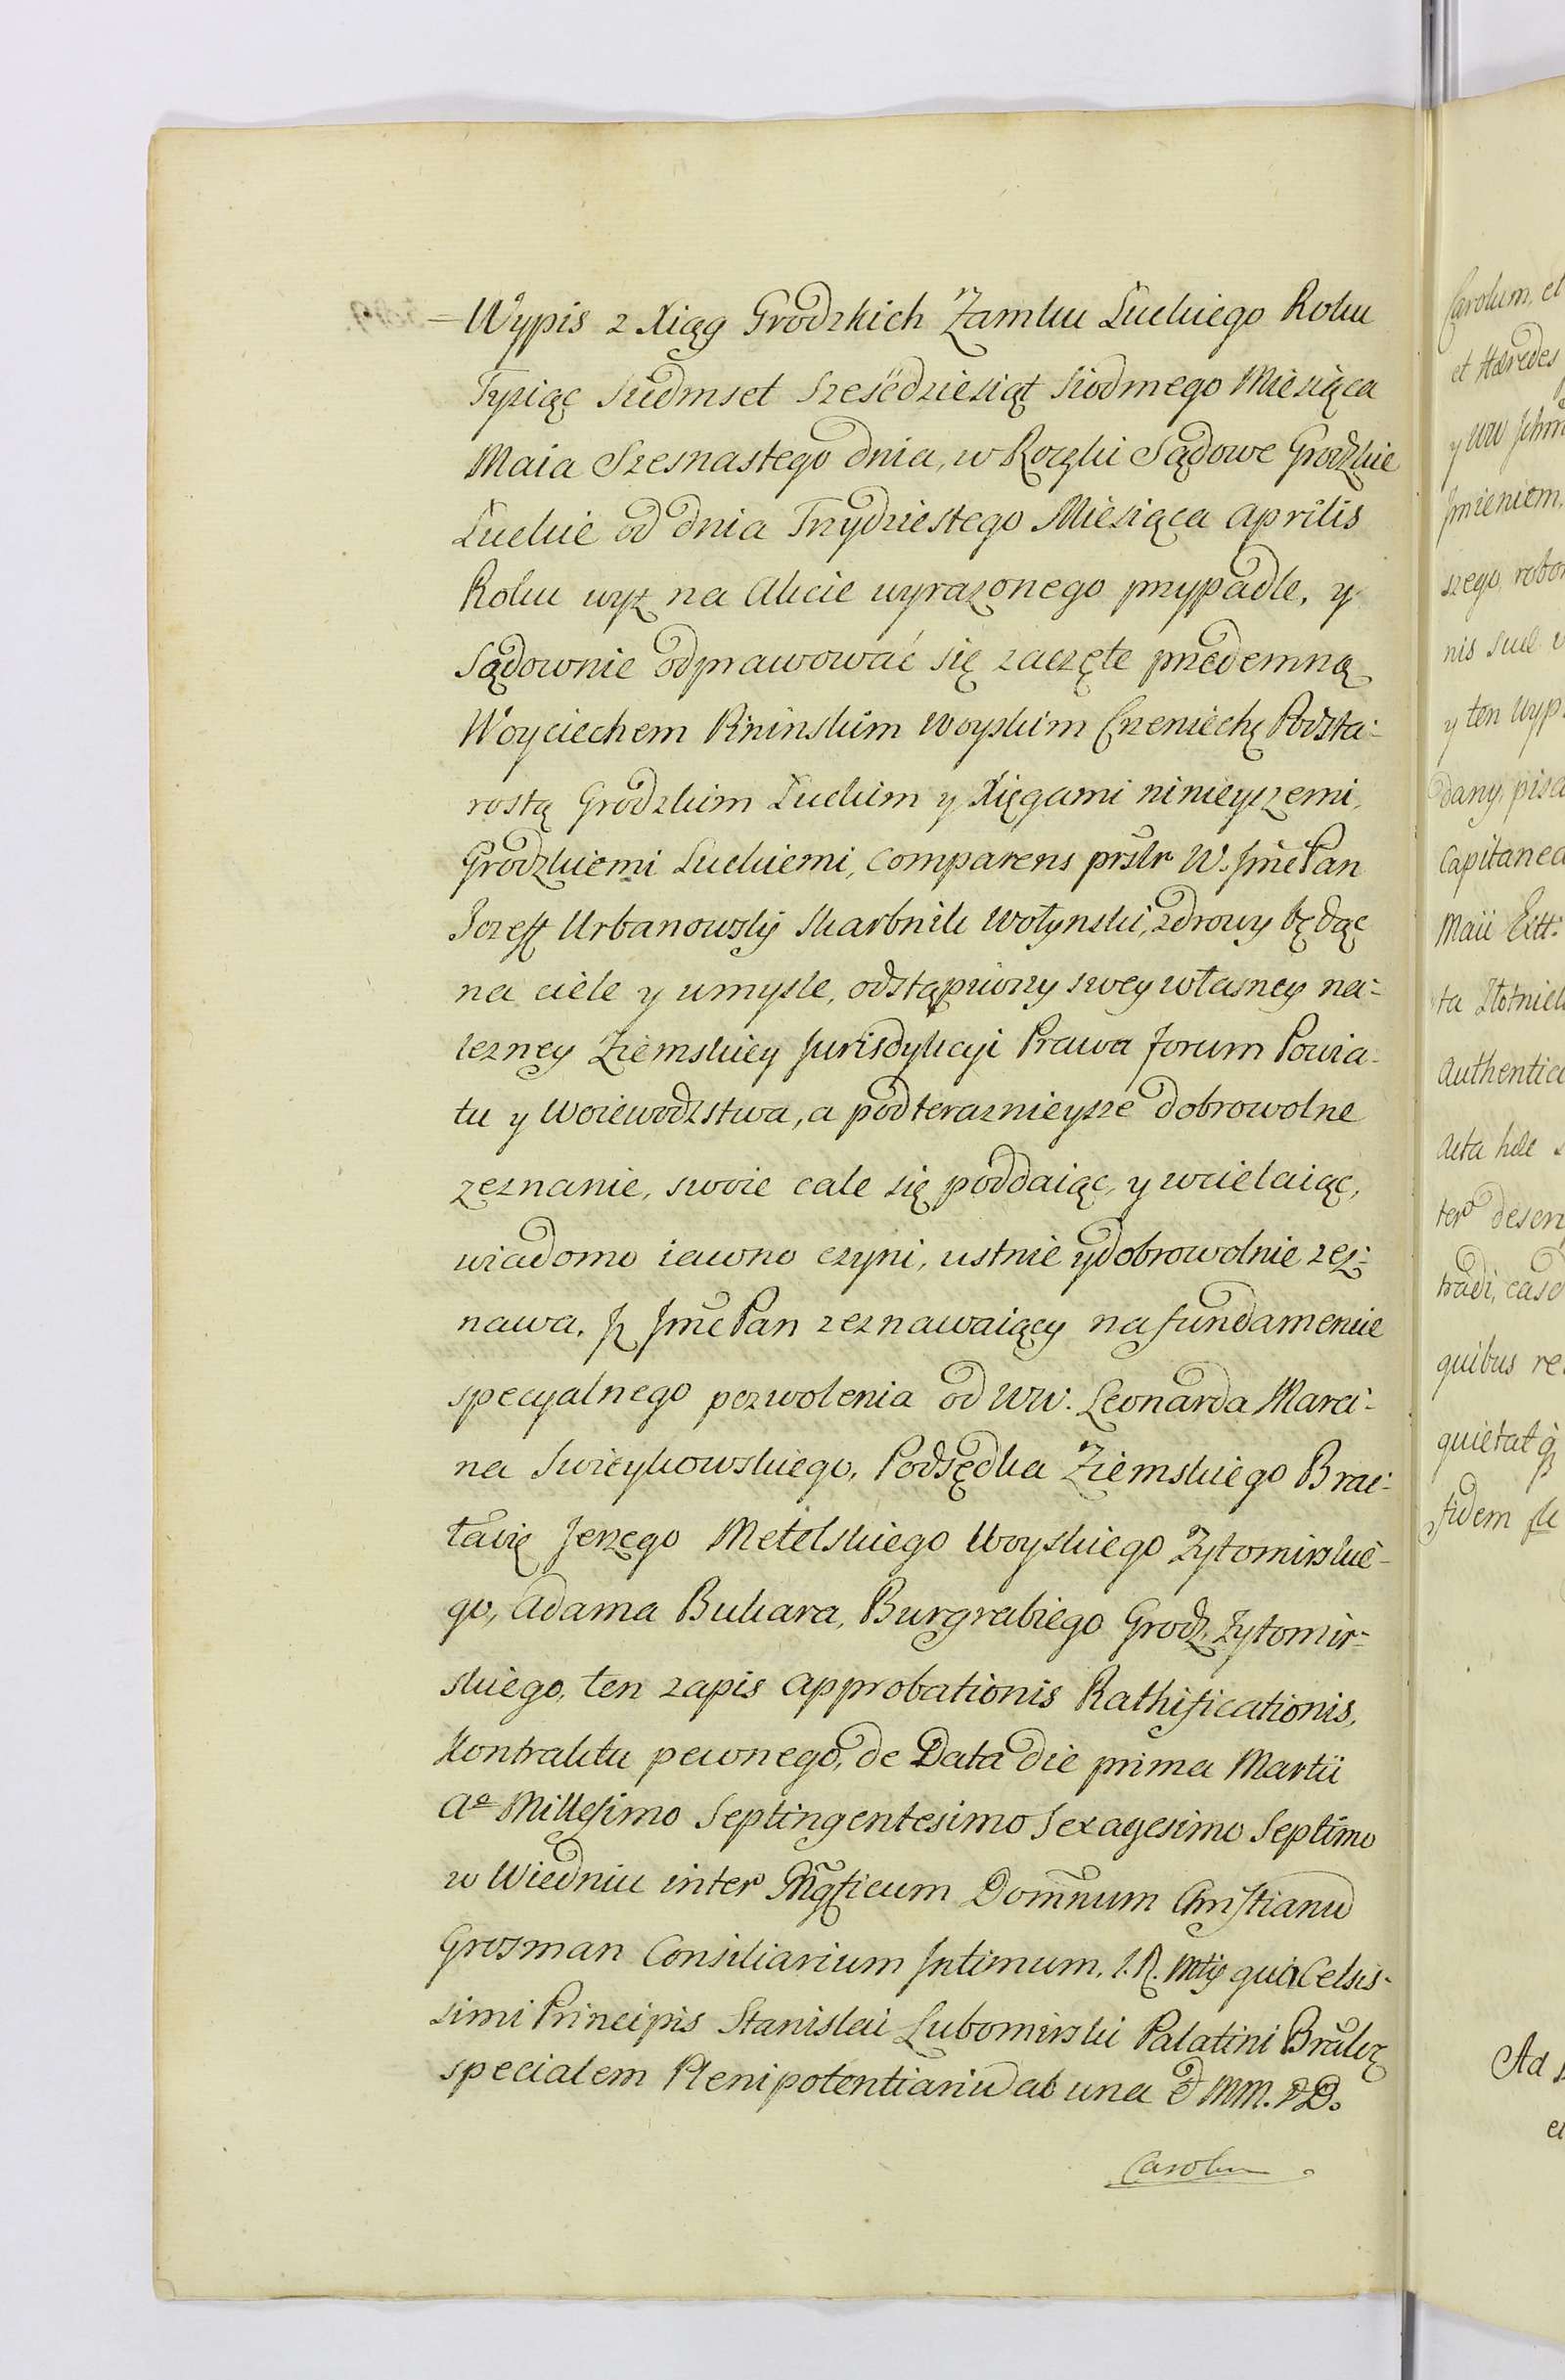 = Wypis z Xiąg Grodzkich Zamku Łuckiego Roku
Tysiąc siedmset Sześćdziesiąt siodmego Miesiąca
Maia Szesnastego dnia, w Roczki Sądowe Grodzkie
Łuckie od dnia Trzydziestego Miesiąca Aprilis
Roku wyż na Akcie wyrazonego przypadłe, y
Sądownie odprawować się zaczęte przedemną
Woyciechem Rninskim Woyskim Czerniechę Podsta:
rostą Grodzkim Łuckim y Xięgami ninieyszemi,
Grodzkiemi Łuckiemi, Comparens prsltr W. Jmć Pan
Jozeff Urbanowsky Skarbnik Wołynski, zdrowy będąc
na ciele y umysle, odstąpiwszy swey własney na:
lezney Ziemskiey Jurisdykcyi Prawa forum Powia:
tu y Woiewodztwa, a pod teraznieysze dobrowolne
zeznanie, swoie cale się poddaiąc, y wcielaiąc,
wiadomo iawno czyni, ustnie y dobrowolnie zez:
nawa. Jż Jmć Pan zeznawaiący na fundamencie
specyalnego pozwolenia od WW. Leonarda Marci:
na Swieykowskiego, Podsędka Ziemskiego Brac:
ławę Jerzego Metelskiego Woyskiego Zytomirskie-
go, Adama Bukara, Burgrabiego Grodz. Zytomir-
skiego, ten zapis approbationis Rathificationis,
Kontraktu pewnego, de Data die prima Martii
Aº Millesimo Septingentesimo Sexagesimo Septimo
w Wiedniu inter Mgficum Domnum Christianu
Grosman Consiliarium Jntimum. S. R. Mtis qua Celsis-
simi Principis Stanislai Lubomirski Palatini Bralvę
specialem Plenipotentiariu ab una et MM. DD.
Carolum
Carolum, et
et Hæredes
y WW
Jmieniem,
szego, robor
nis suæ
y ten Wyp.
dany, pisa
Capitanea
Maii Extt:
ta Złotnick
Authentica
Acta hæc
tero descri
tradi,
quibus re
quietat q
fidem
Ad